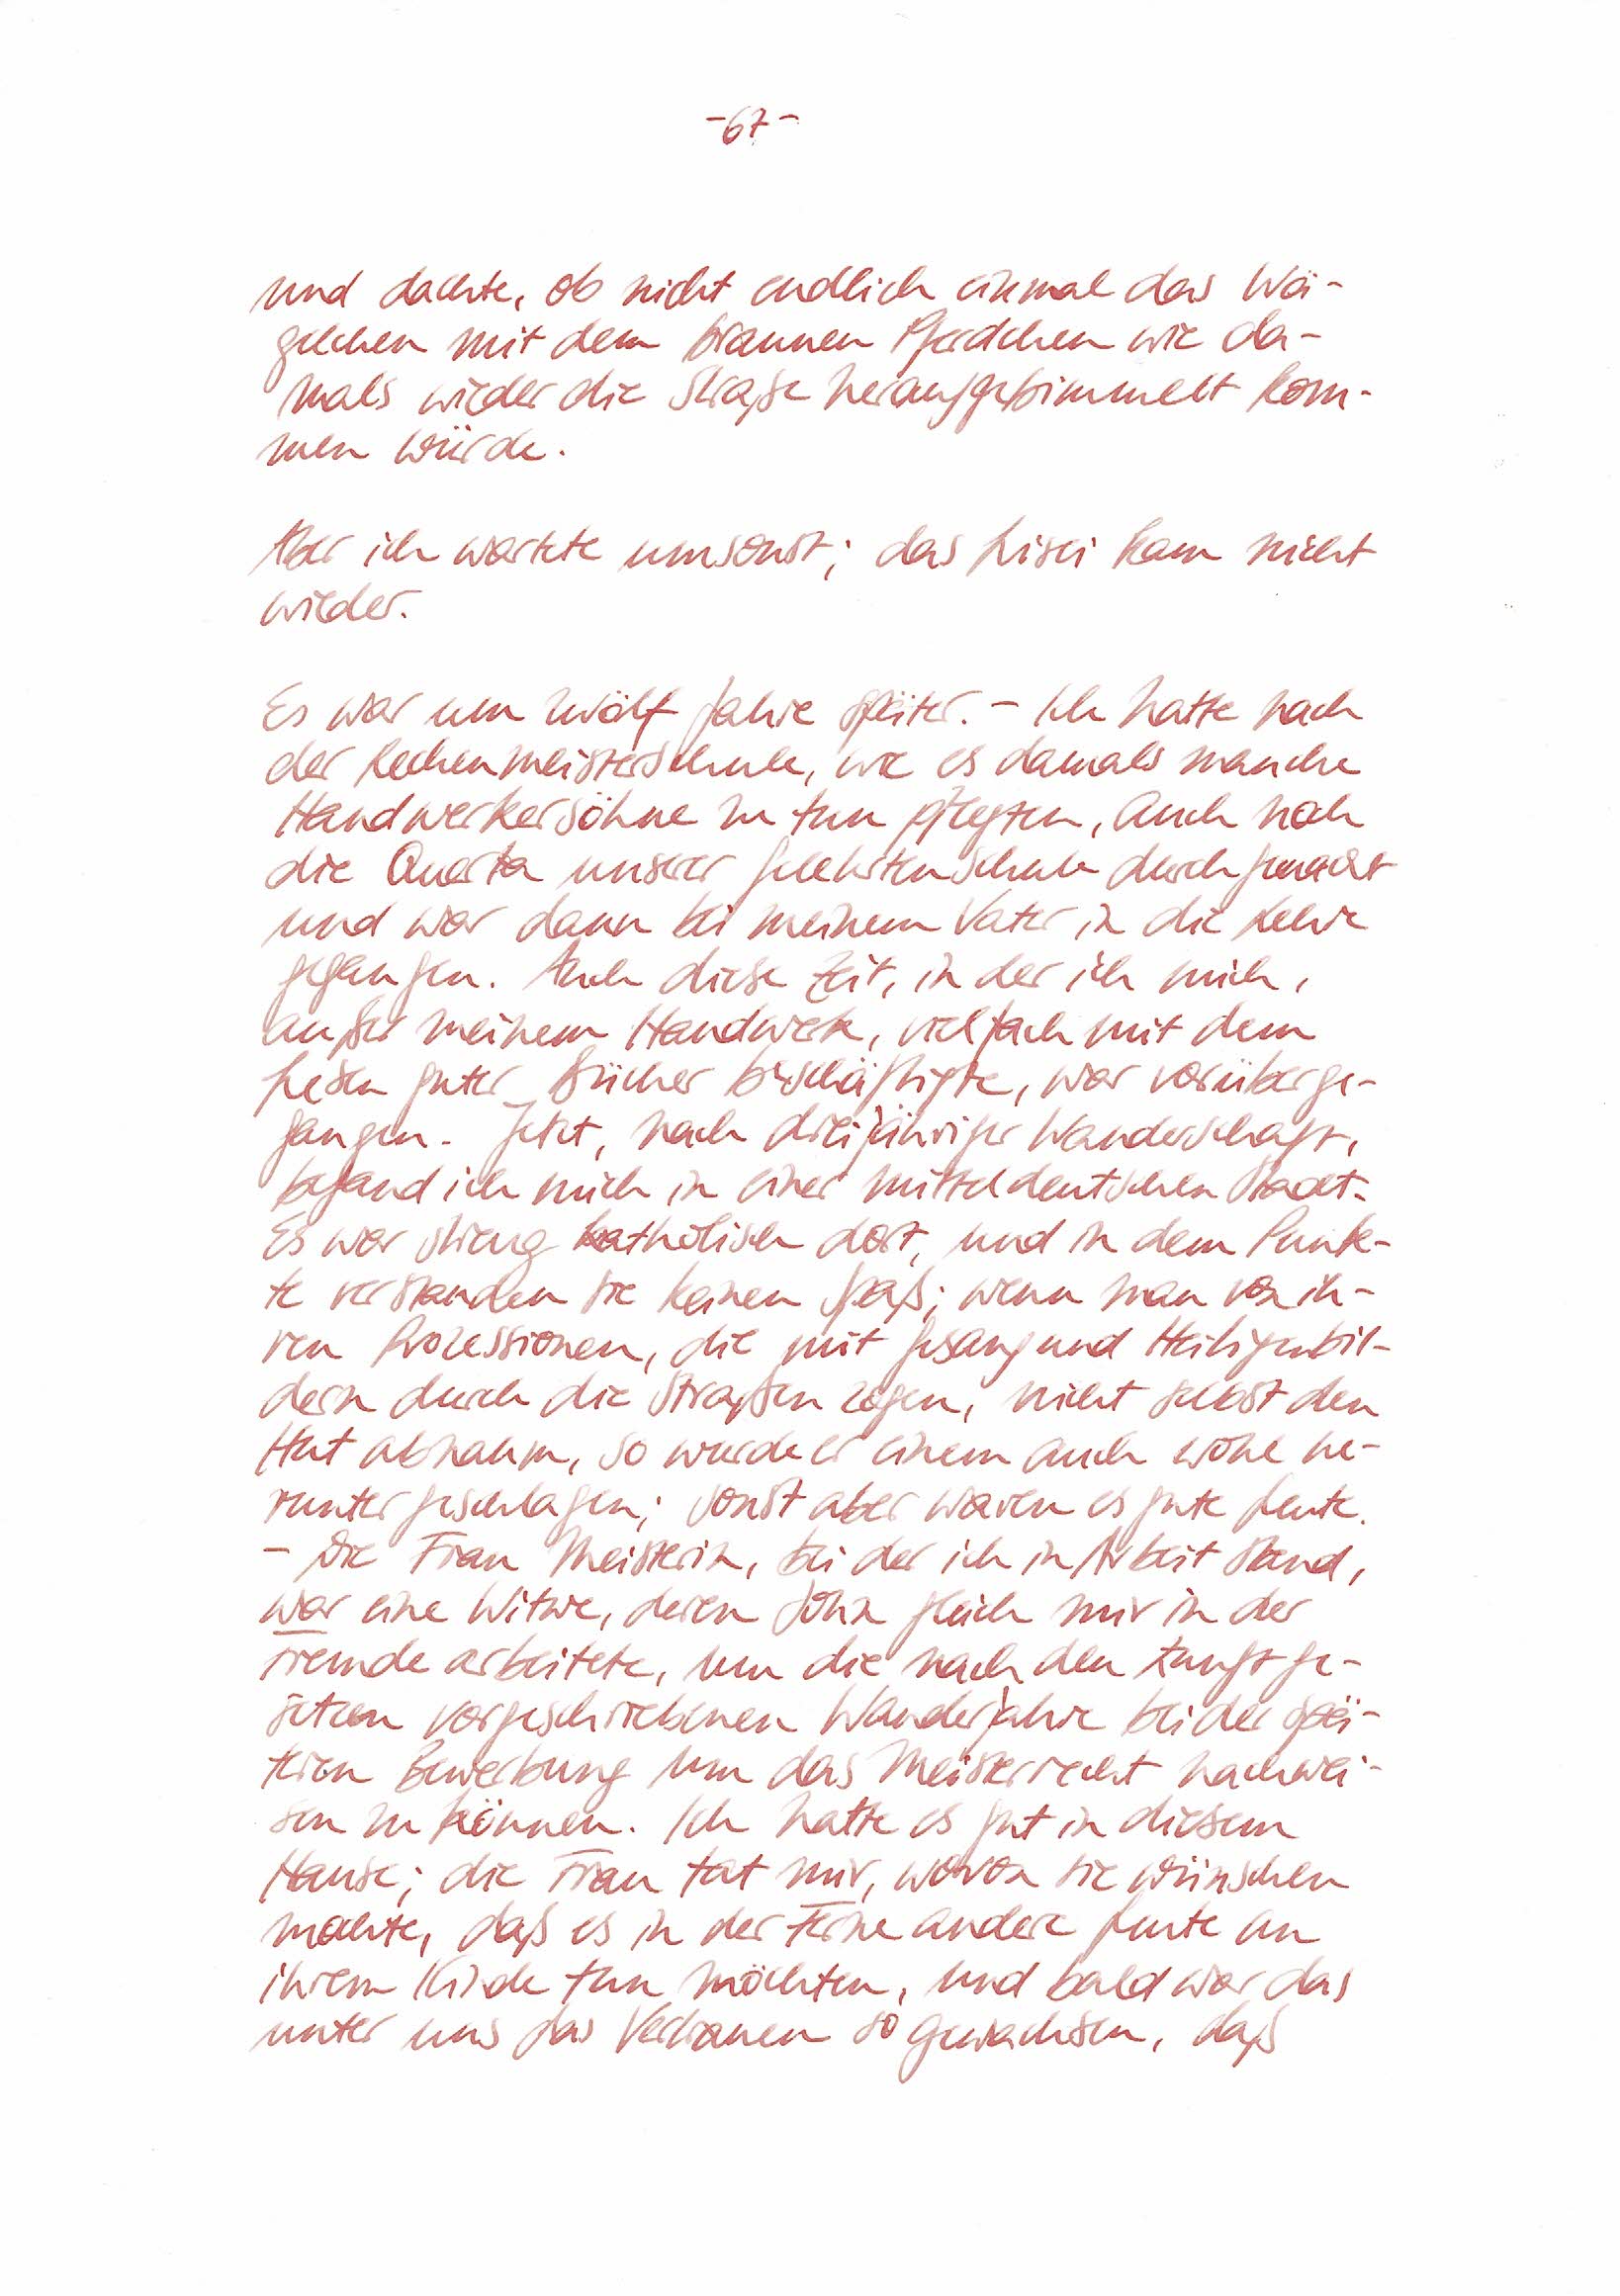 -67-
und dachte, ob nicht endlich einmal das Wä-
gelchen mit dem braunen Pferdchen wie da-
mals wieder die Straße heraufgebimmelt kom-
men würde.
Aber ich wartete umsonst; das Lisei kam nicht
wieder.
Es war um zwölf Jahre später. – Ich hatte nach
der Rechenmeisterschule, wie es damals manche
Handwerkersöhne zu tun pflegten, auch noch
die Quarta unserer Gelehrtenschule durchgemacht
und war dann bei meinem Vater in die Lehre
gegangen. Auch diese Zeit, in der ich mich,
außer meinem Handwerk, vielfach mit dem
Lesen guter Bücher beschäftigte, war vorüberge-
gangen. Jetzt, nach dreijähriger Wanderschaft,
befand ich mich in einer mitteldeutschen Stadt.
Es war streng katholisch dort, und in dem Punk-
te verstanden sie keinen Spaß; wenn man von ih-
ren Prozessionen, die mit Gesang und Heiligenbil-
dern durch die Straßen zogen, nicht selbst den
Hut abnahm, so wurde er einem auch wohl he-
runtergeschlagen; sonst aber waren es gute Leute.
– Die Frau Meisterin, bei der ich in Arbeit stand,
war eine Witwe, deren Sohn gleich mir in der
Fremde arbeitete, um die nach den Zunftge-
setzen vorgeschriebenen Wanderjahre bei der spä-
teren Bewerbung um das Meisterrecht nachwei-
sen zu können. Ich hatte es gut in diesem
Hause; die Frau tat mir, wovon sie wünschen
mochte, daß es in der Ferne andere Leute an
ihrem Kinde tun möchten, und bald war das
unter uns das Vertrauen so gewachsen, daß